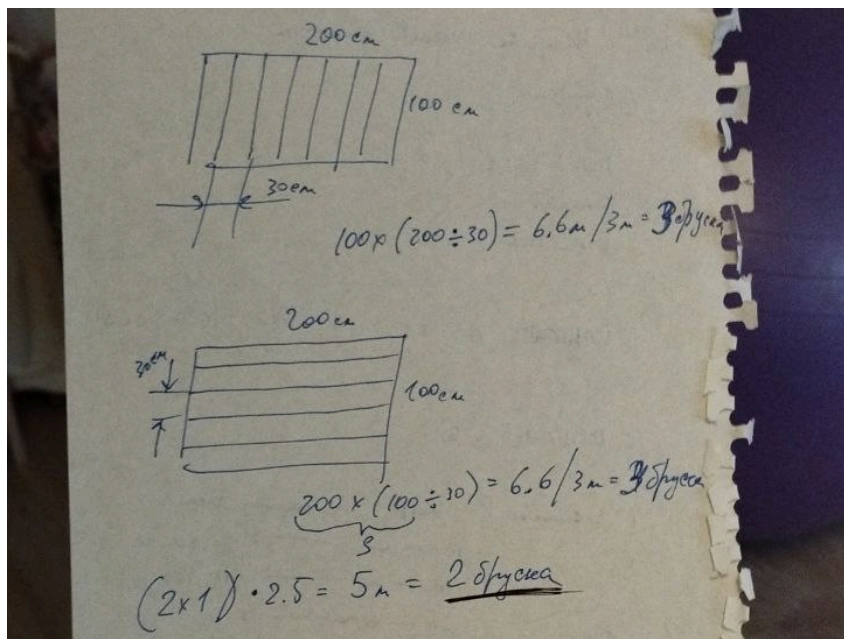 200 см
100 см
30 см
100 x (200 ÷ 30) = 6.6 м / 3 м = 3 бруска
200 см
30 см
100 см
200 x (100 ÷ 30) = 6.6 / 3 м = 3 бруска
S
(2x1) · 2.5 = 5 м = 2 бруска